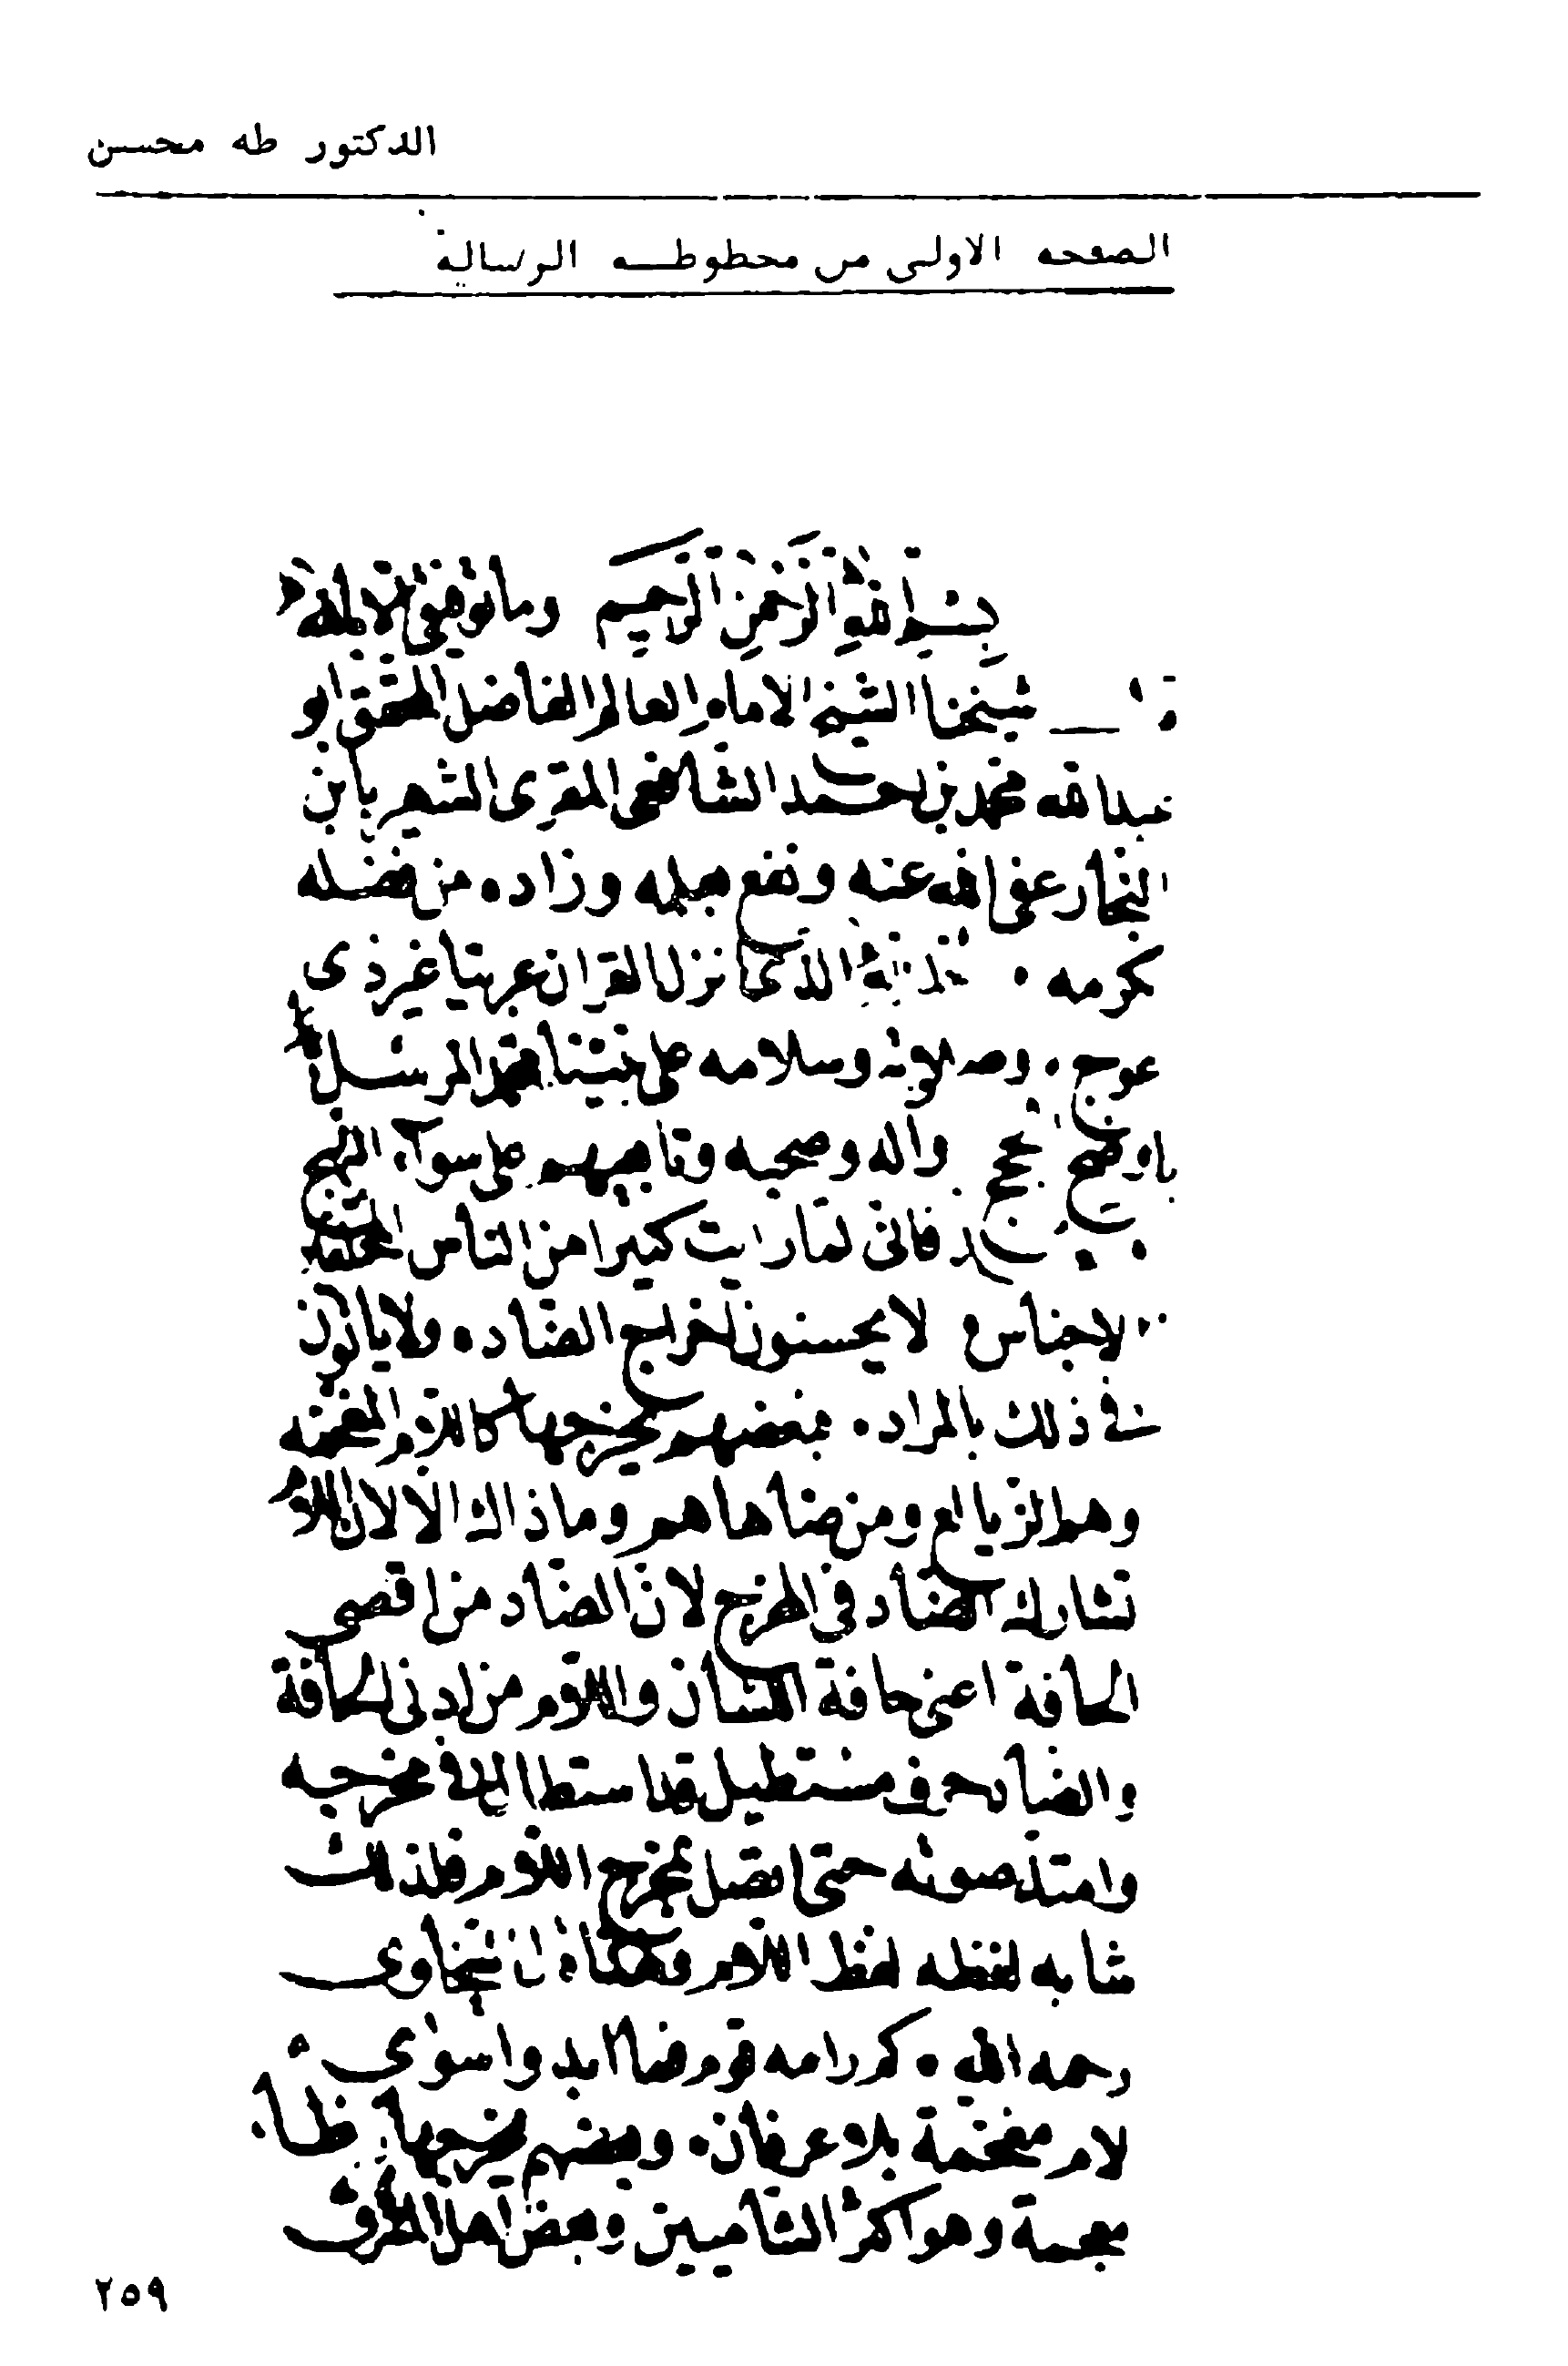 الدكتور طه محسن
الصفحه الاولى من مخطوطـــه الرسالة
بسم الله الرحمن الرحيم وما توفيقي الا بالله
قال شيخنا الشيخ الامام العالم الفاضل المحقق ابو
عبد الله محمد بن احمد الشافعي المقرى الشهير بابن
النجار عفى الله عنه ونفع بعلمه وزاده من فضله
بكرمه . الذى انزل القران عربيا غير ذى
عوج . وصلاته وسلامه على نبينا محمد المرسل
باوضح حجج واله وصحبه وتابعيهم على سوآء النهج
فانى لما رايت كثيرا من الناس المختلفة
الاجناس لا يحسنون اخراج الضاد ولا ياتون
فى ذلك بالمراد . فبعضهم يخرجها كاللام المفخمه
وهم الزيالع ومن ضاهاهم وما ذاك الا لان اللام
تشارك الضاد فى المخرج لان الضاد من اقصى
الحافة اعنى حافة اللسان واللام من ادنى الحافة
والضاد حرف مستطيل قد استطال فى مخرجه
وامتد صوته حتى اتصل بمخرج اللام فلذلك
شابه لفظه لفظ اللام وهكذا قال السخاوى
رحمه الله . كم رامه قوم فما ابدوا سوى
لام مفخمة بلا عرفان . وبعضهم يخرجها ظاء
معجمة وهم اكثر الشاميين وبعض اهل الشرق
٢٥٩